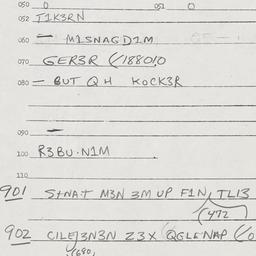 050 0 051 0
052 T1K3RN
060 — M1SNAGD1M
070 GER3R (/188010
080 — BUT QH KOCK3R
090 —
100 R3BU·N1M
110
901 S+NA·T M3N 3M UP F1N, TL13
(472
902 C1LE, 3N3N Z3X QGLENAP (/0
(680,